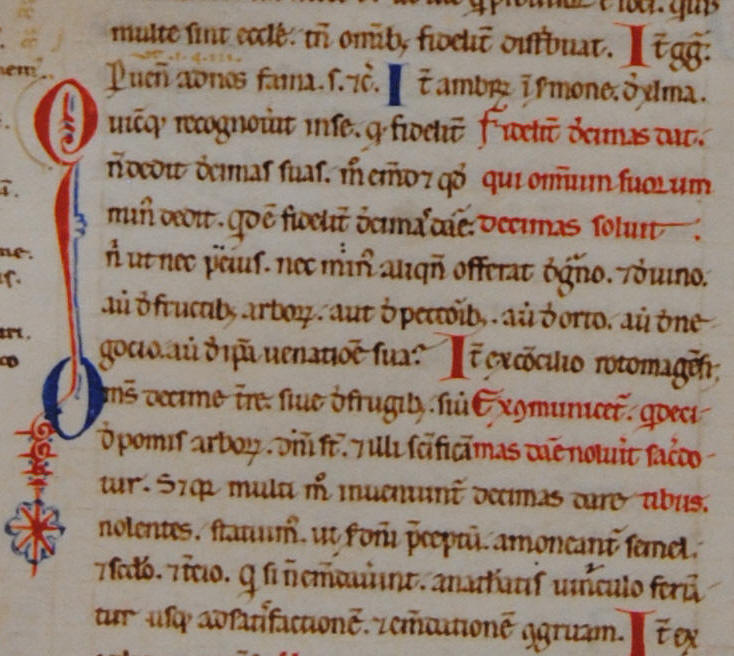 multe sint eccłe. tn̄ omīb; fidelit̄ distˢbuat. It̄ gg̅.
Puen̄ ad nos fama. s. ⁊c̄. It̄ ambꝛꝫ ī smone. đ xlma.
Quicꝙ recognoũit in se. ꝙ fidelit̄ Fidelit̄ đcimas dat.
n̄ dedit đcimas suas. m̊ em̄d⁊ qđ qui omnium suoꝛum
min᷒ dedit. qđ ē fidelit̄ đcimaˢ daꝛe. decimas soluit.
n̄ ut nec peius. nec min᷒ aliqn̄ offerat đ gͣno. ⁊ đ uino.
aũ đ fructib; arboꝝ. aut đ peccoꝛib;. aũ đ orto. aũ đ ne
gocio. aũ đ ip̄a uenatiōe sua. It̄ ex cōcilio rotomagēsi.
Om̄s decime tr̄e. siue đ frugib;. siũ Excōmunicet̄. q deci
đ pomis arboꝝ. dn̄i st̄. ⁊ illi scīficā mas daꝛe noluit sac̄do
tur. S; qꝛ multi m̊ inueniunt̄ decimas dare tibus.
nolentes. statuim᷒. ut s̄ dn̄i p̄ceptū. amoneant̄ semel.
⁊ scđo. ⁊ t̄cio. q si n̄ em̄dauīnt. anath̄atis uīnculo feriā
tur usq; ad satisfactionē. ⁊ em̄dationē ꝯgruam. It̄ ex